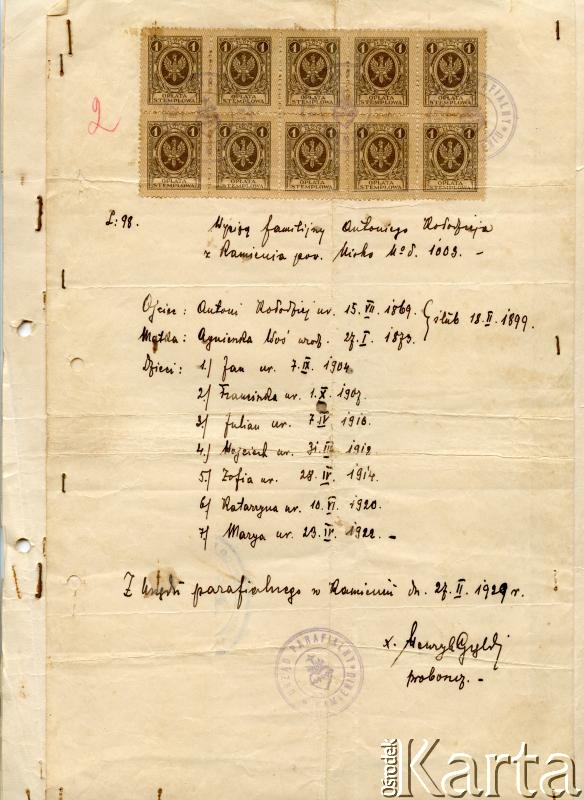 1 1 1 1 1
OPŁATA STEMPLOWA OPŁATA STEMPLOWA OPŁATA STEMPLOWA OPŁATA STEMPLOWA OPŁATA STEMPLOWA
1 1 1 1 1
OPŁATA STEMPLOWA OPŁATA STEMPLOWA OPŁATA STEMPLOWA OPŁATA STEMPLOWA OPŁATA STEMPLOWA
2
L: 98. Wyciąg familijny Antoniego Kołodzieja
z Kamienia pow. Nisko No d. 1003. -
Ojciec: Antoni Kołodziej ur. 15. VII. 1869.
Matka: Agnieszka Woś urodz. 27. I. 1873.
ślub 18. II. 1899.
Dzieci: 1.) Jan ur. 7. IX. 1904.
2.) Franciszka ur. 1. X. 1907.
3.) Julian ur. 7 IV 1910.
4.) Wojciech ur. 31. III. 1912.
5.) Zofia ur. 28. IV. 1914.
6.) Katarzyna ur. 10. VI. 1920.
7.) Marya ur. 23. IV. 1922. -
Z Urzędu parafialnego w Kamieniu dn. 27. II. 1929 r.
x. Henryk
proboszcz. -
URZĄD PARAFIALNY
Ośrodek Karta